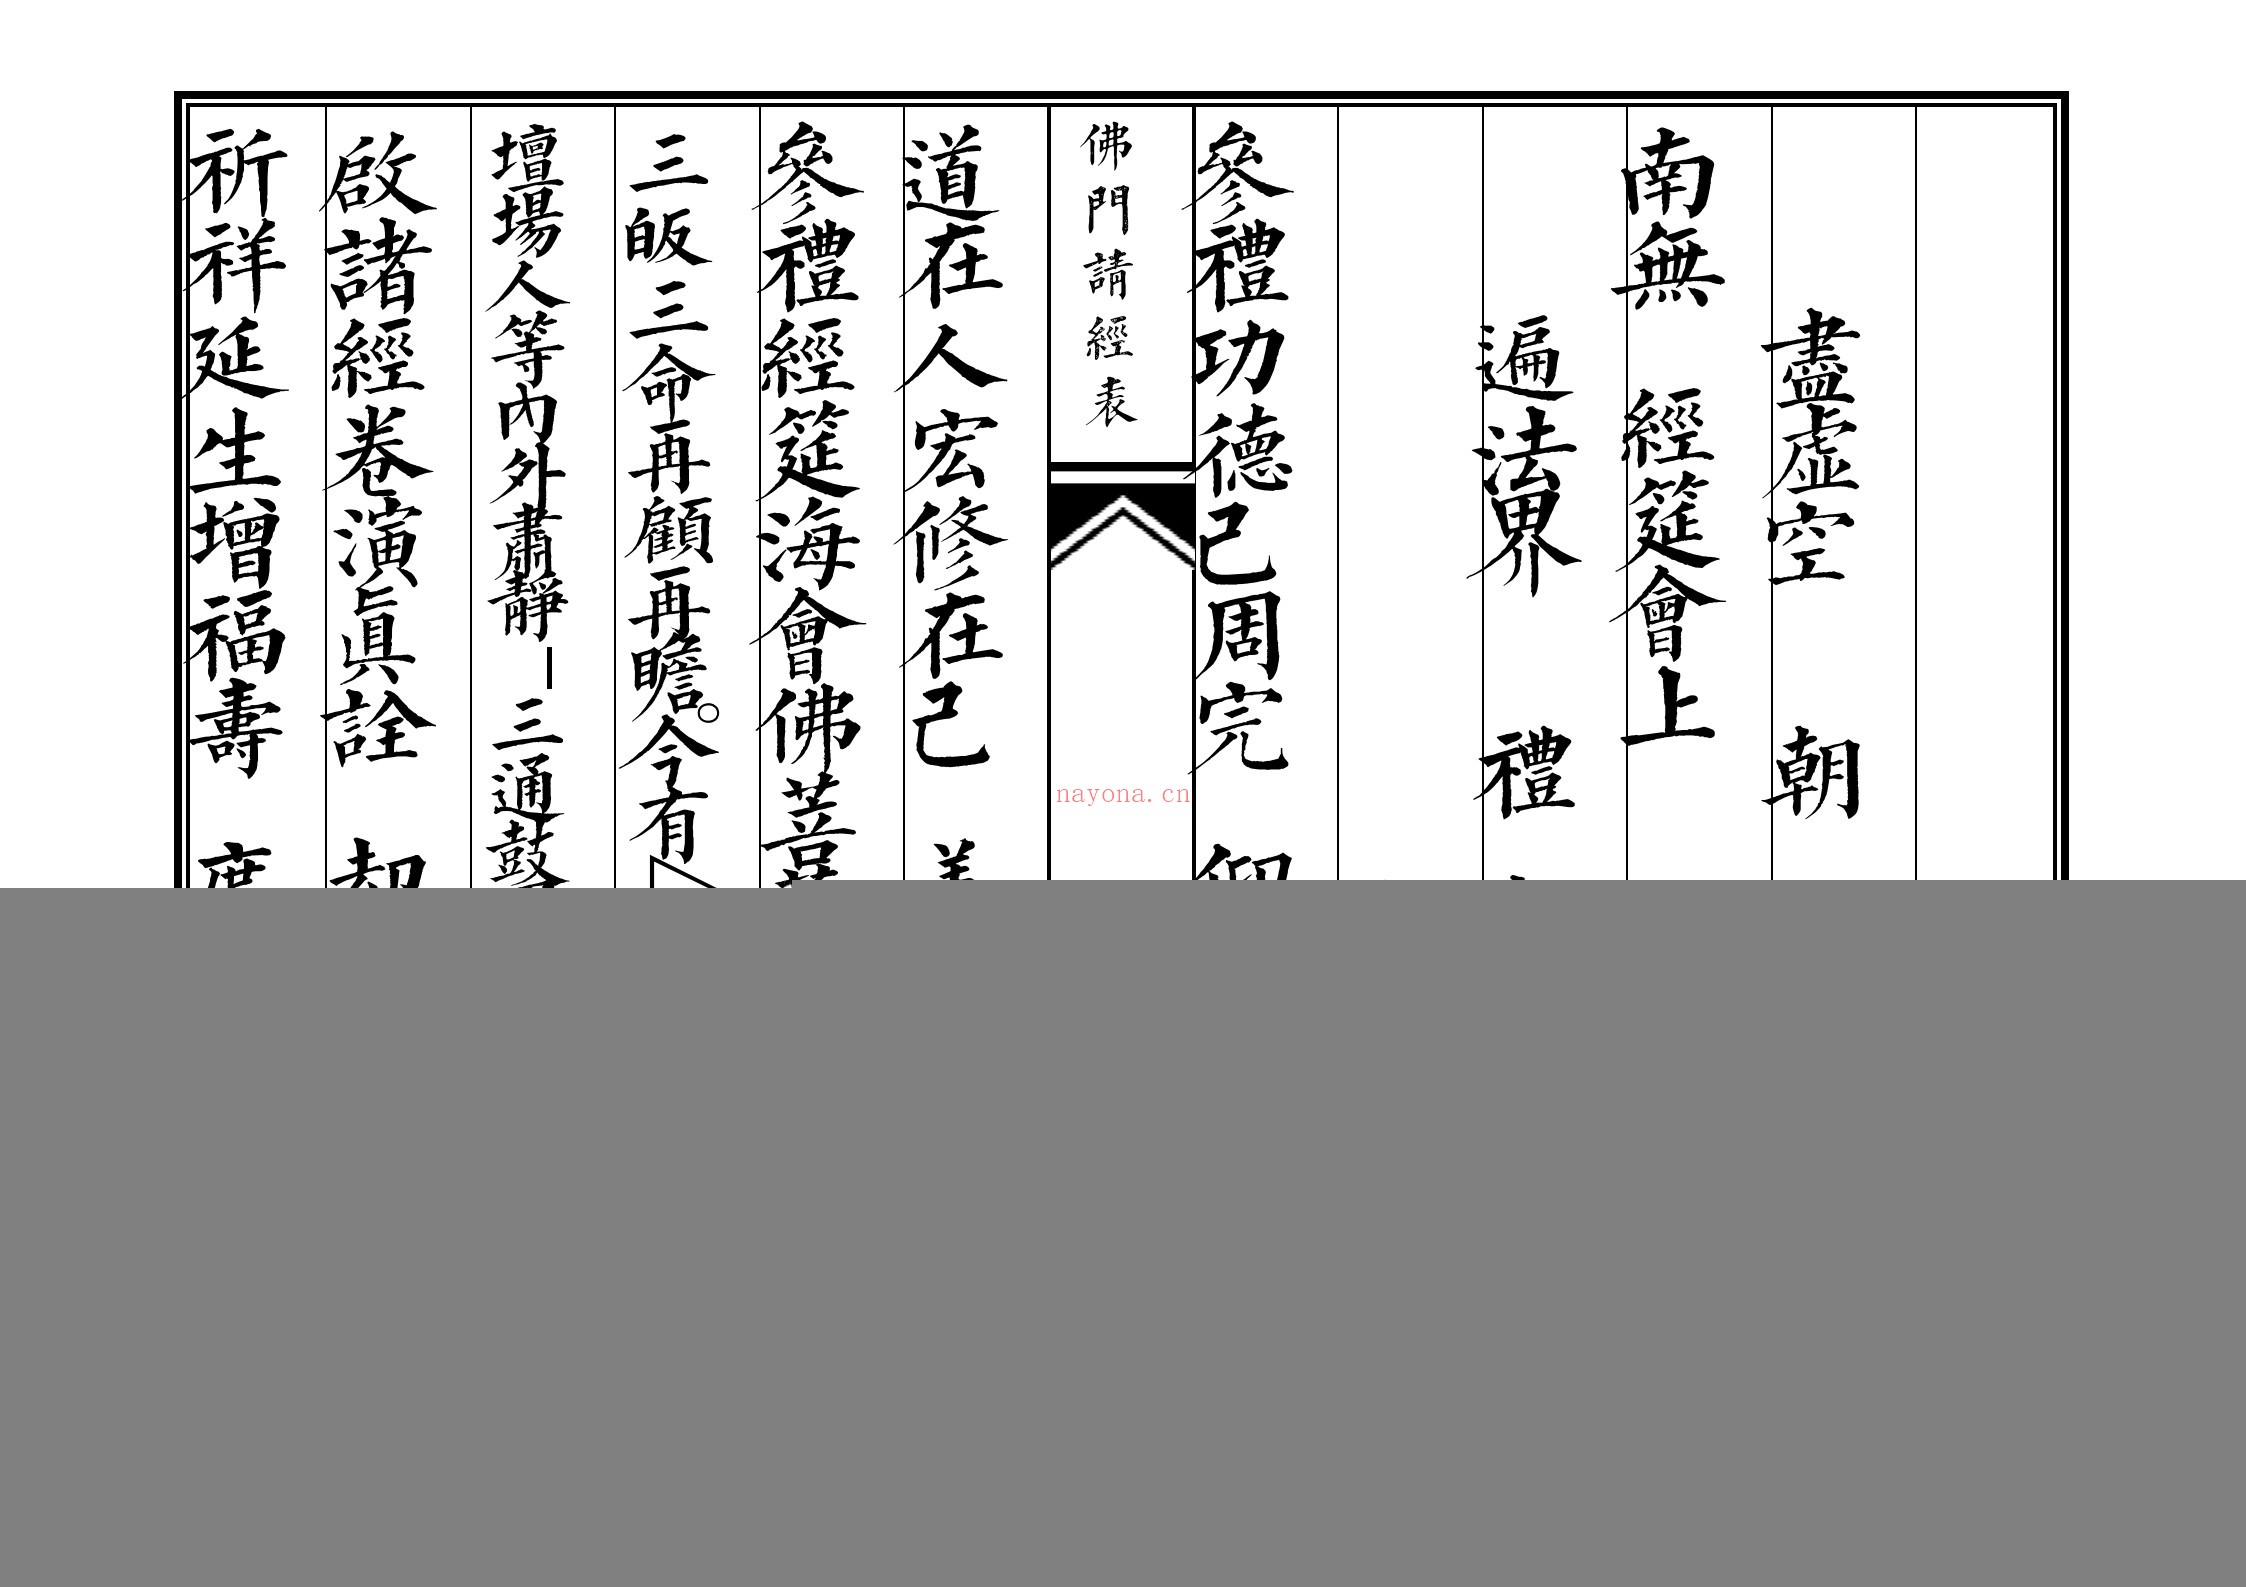 盡虛空 朝
南無 經筵會上
遍法界 禮
參禮功德己周完
佛門請經表
nayona.cn
道在人宏修在己
參禮經筵海會佛菩
三皈三命再顧再瞻。今有
壇場人等內外肅靜 三通鼓
啟諸經卷演眞詮
祈祥延生增福壽